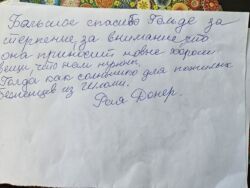 Большое спасибо Гольде за
терпение, за внимание что
она приносит новые хороши
вещи, что нам нужны.
Голда как солнышко для пожилых
беженцев из
Фая Донер.